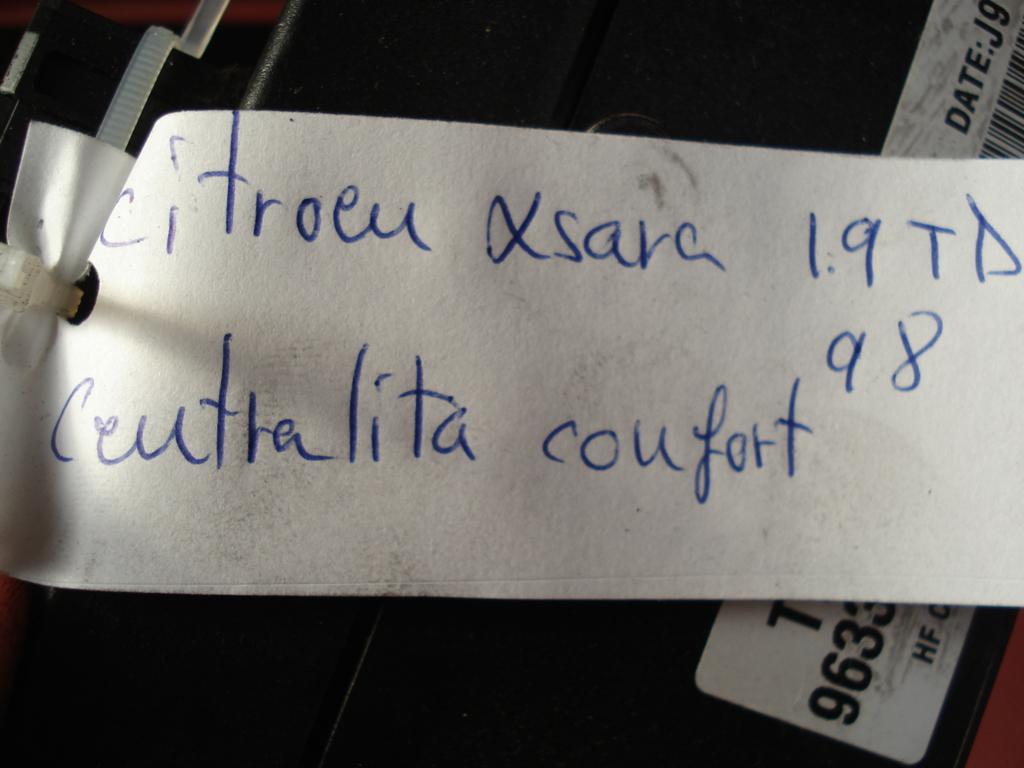 citroen xsara 1.9 TD
98
Centralita confort
DATE:J9
T
9633
HF